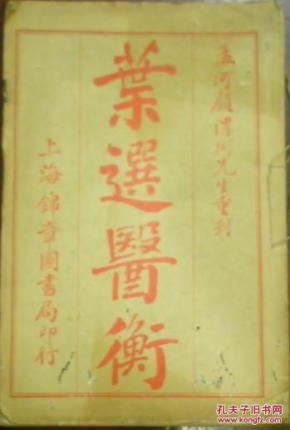 孟河顧渭川先生重刊
葉選醫衡
上海錦章圖書局印行
孔夫子旧书网